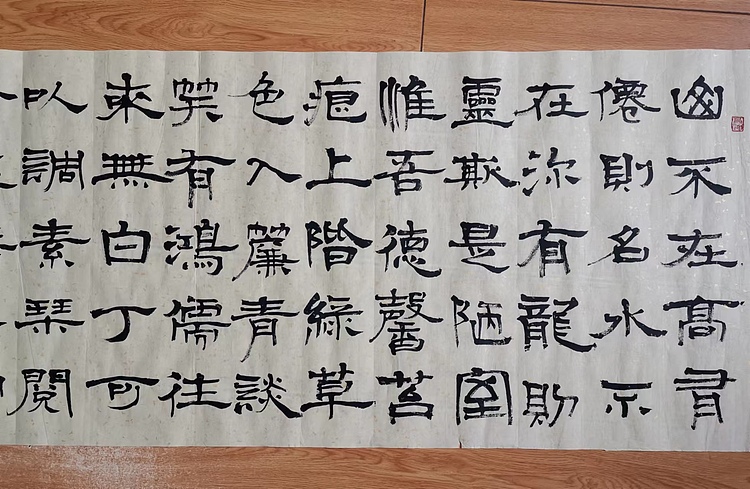 山不在高有
僊則名水不
在深有龍則
靈斯是陋室
惟吾德馨苔
痕上階綠草
色入簾青談
笑有鴻儒往
來無白丁可
以調素琴閱